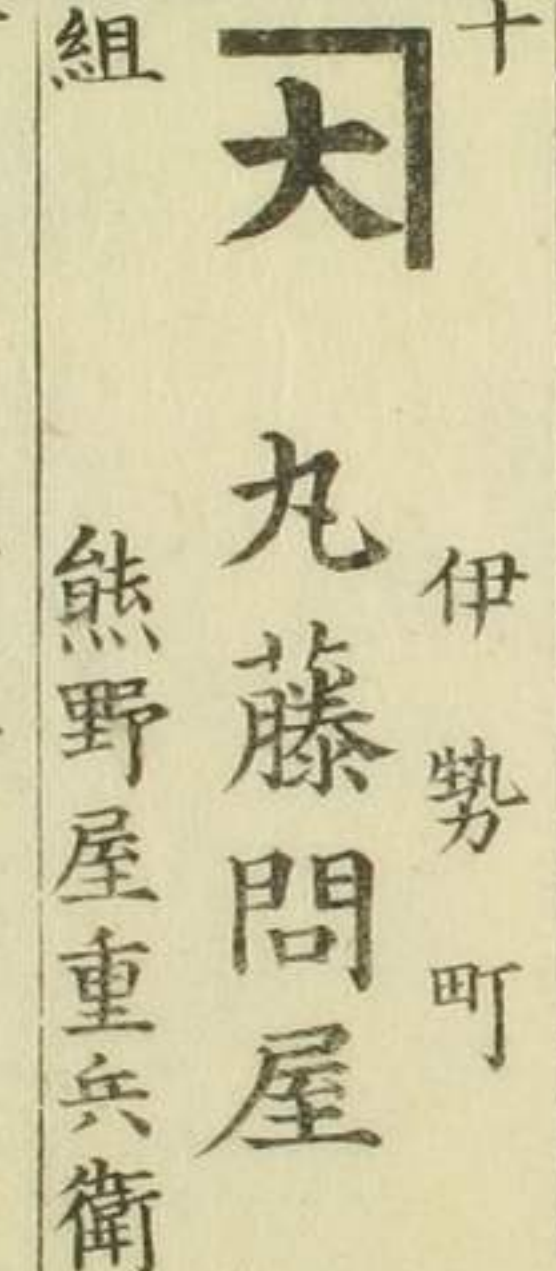 十 伊勢町
大 丸藤問屋
組 熊野屋重兵衛